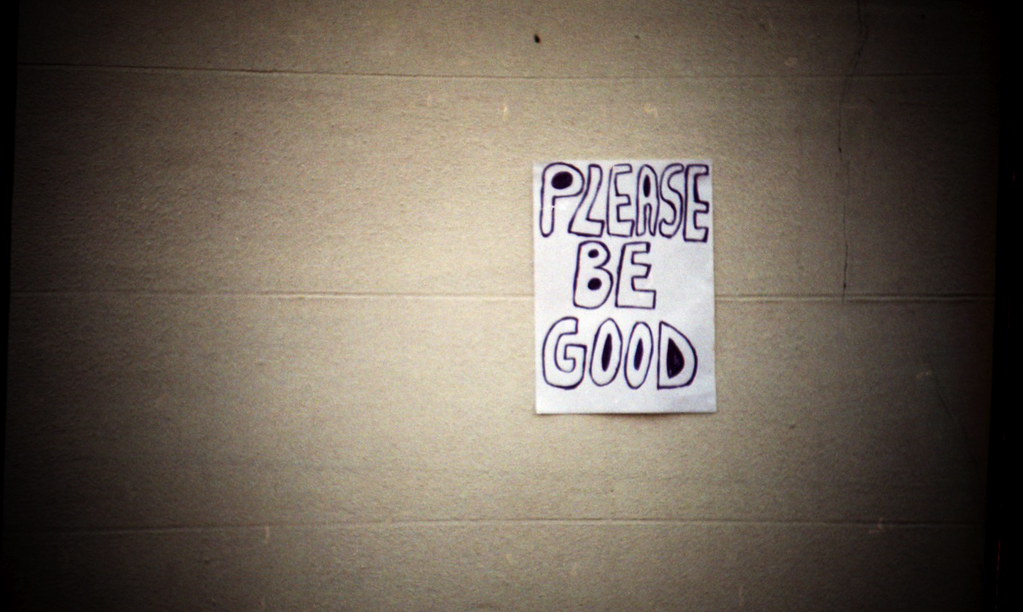 PLEASE
BE
GOOD